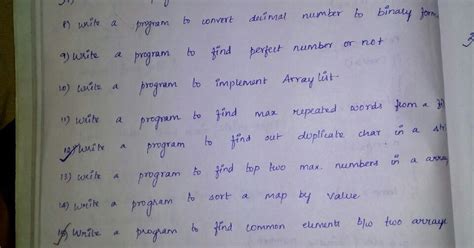 8) Write a program to convert decimal number to binary form
9) Write a program to find perfect number or not
10) Write a program to implement Array list
11) Write a program to find max repeated words from a
12) Write a program to find out duplicate char in a
13) Write a program to find top two max. numbers in a array
14) Write a program to sort a map by value
15) Write a program to find common elements b/w two arrays